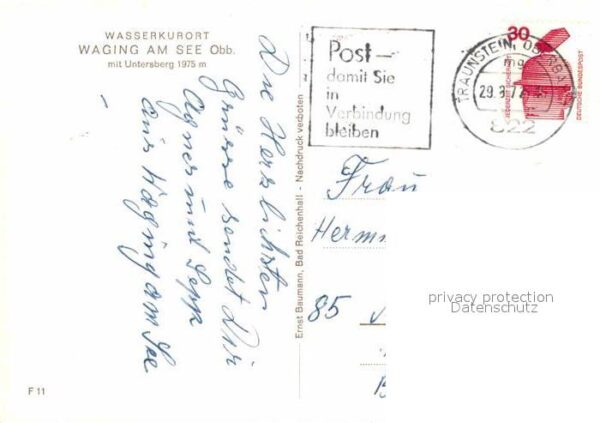 WASSERKURORT
WAGING AM SEE Obb.
mit Untersberg 1975 m
Die Herzlichsten
Grüsse sendet Dir
Agnes und Sepp
aus Waging am See
F 11
Ernst Baumann, Bad Reichenhall - Nachdruck verboten
Post —
damit Sie
in
Verbindung
bleiben
30
TRAUNSTEIN, OBERBAY
mg
822
JEDERZEIT SICHERHEIT
DEUTSCHE BUNDESPOST
Frau
Herm
85
privacy protection
Datenschutz